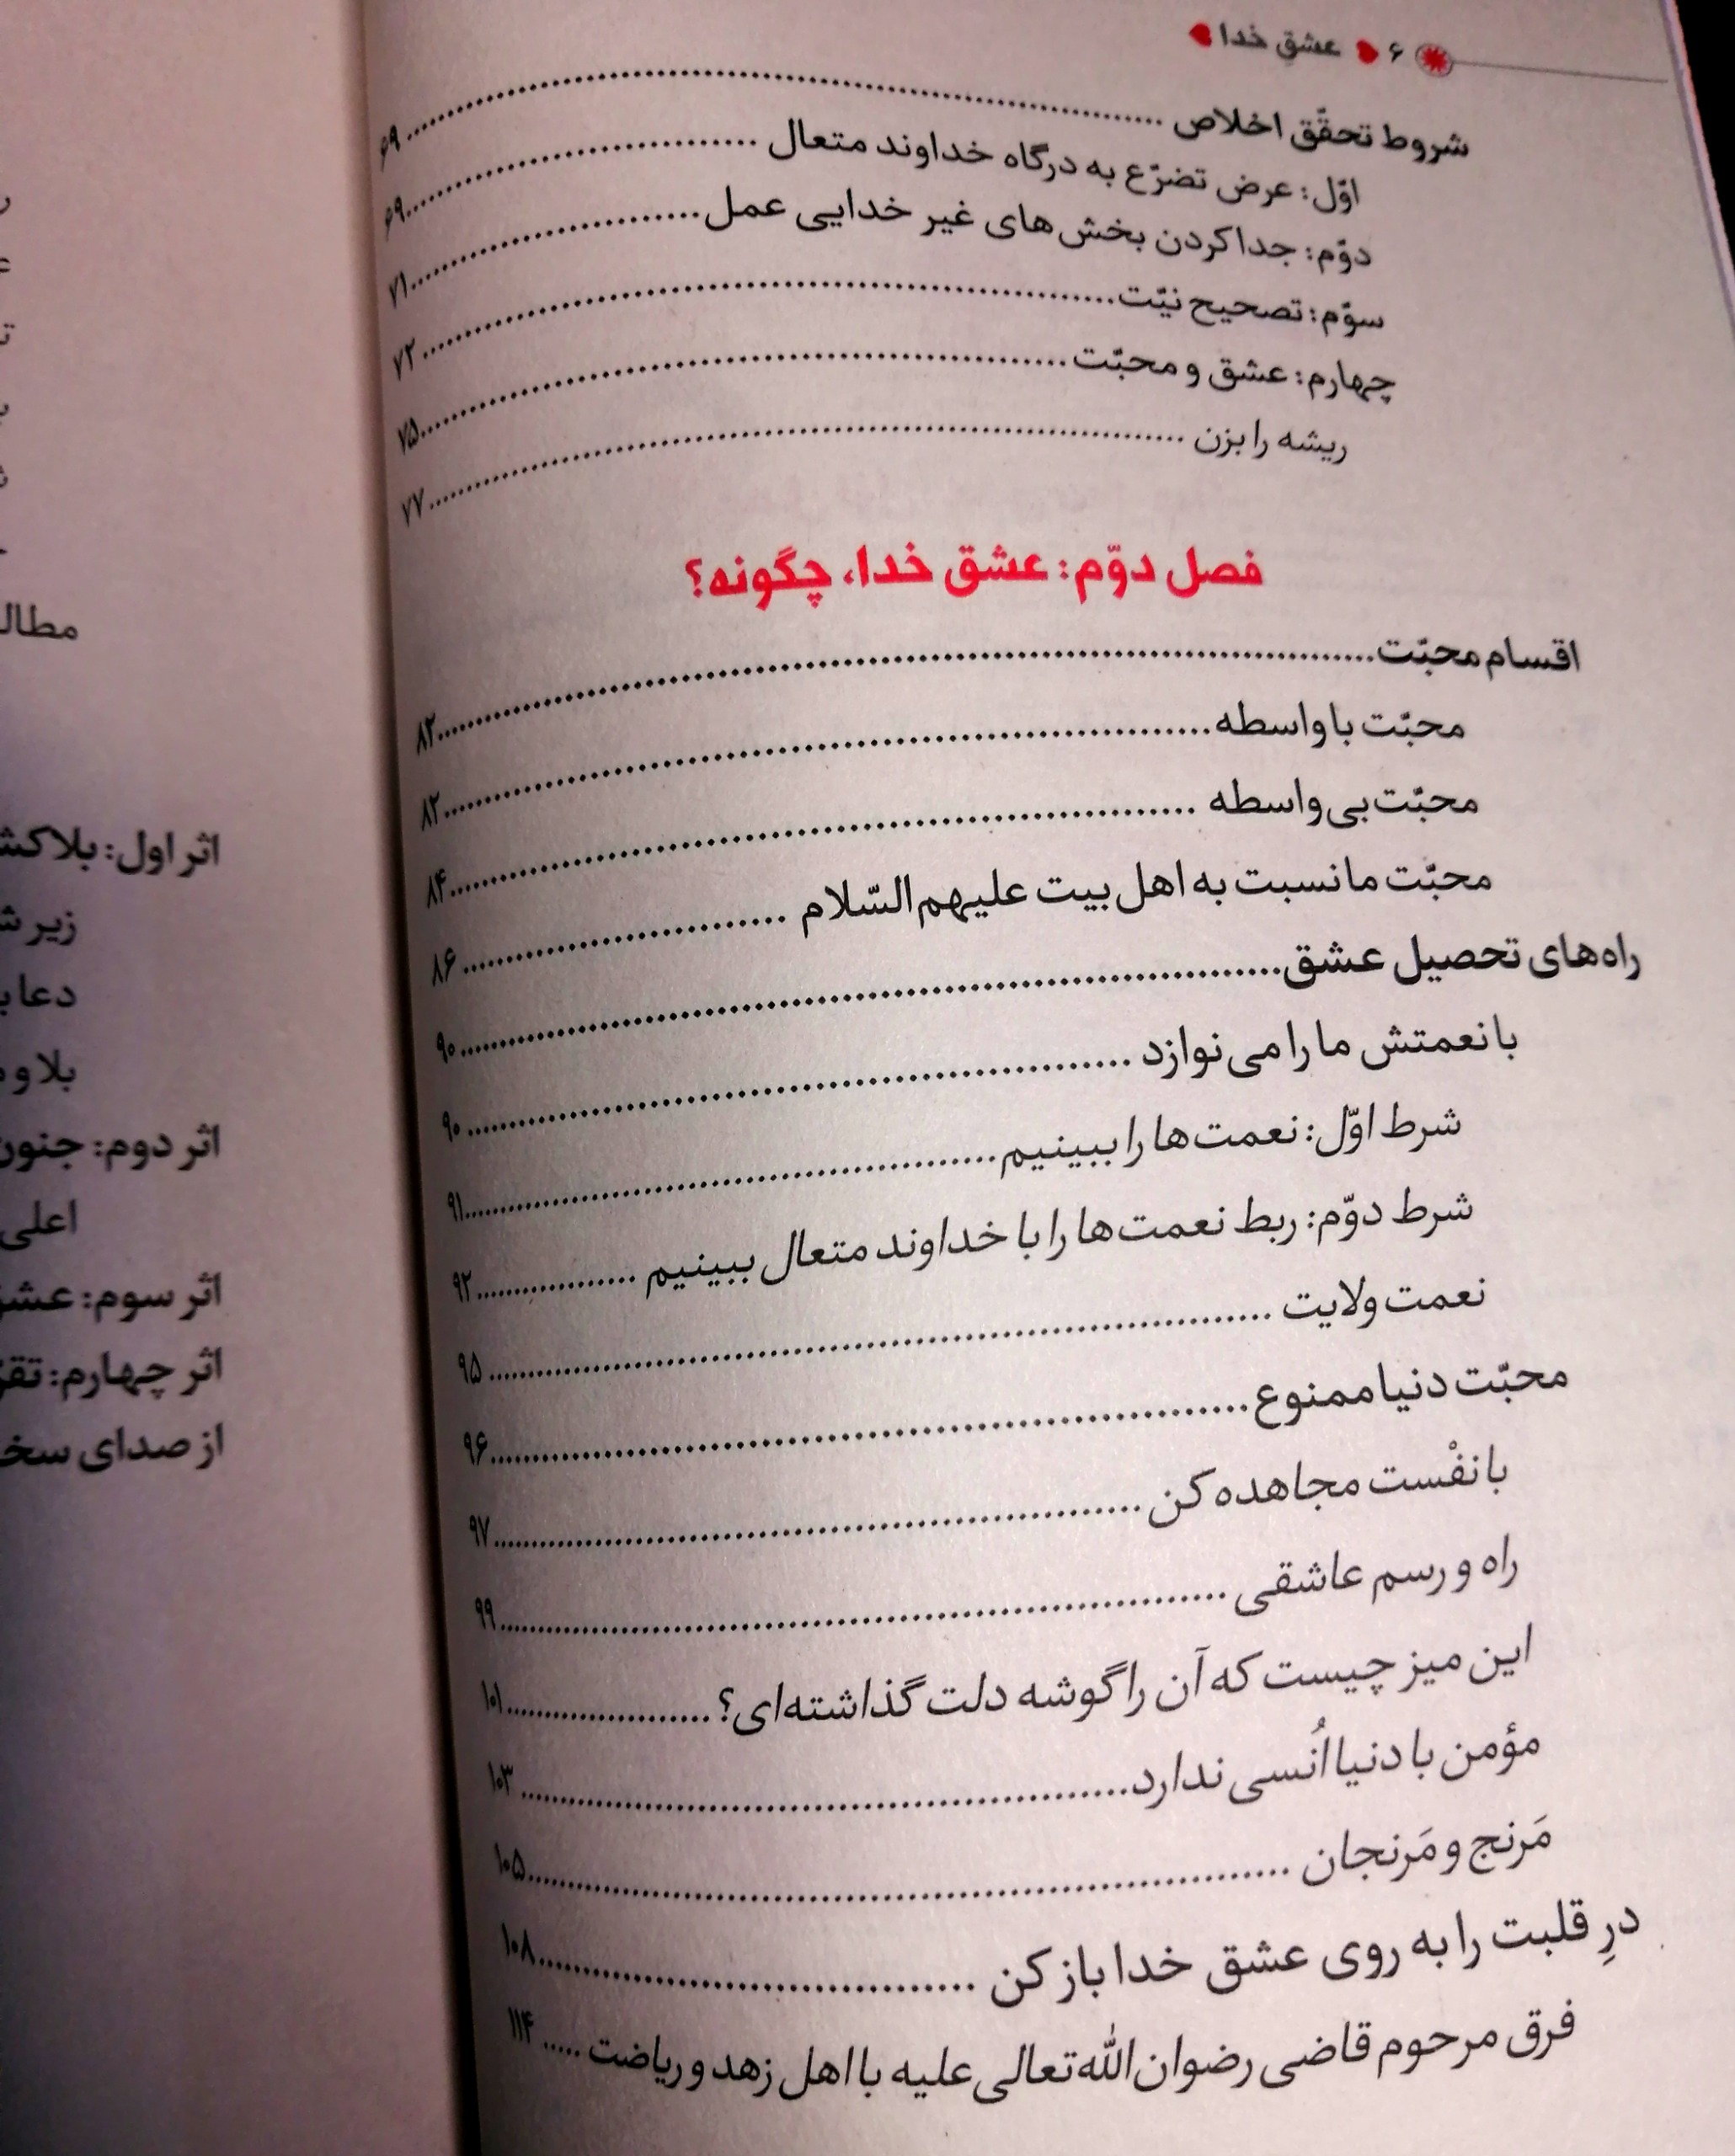 ۶ عشق خدا
شروط تحقّق اخلاص ........ ۶۹
اوّل: عرض تضرّع به درگاه خداوند متعال ........ ۶۹
دوّم: جدا کردن بخش‌های غیر خدایی عمل ........ ۷۱
سوّم: تصحیح نیّت ........ ۷۲
چهارم: عشق و محبّت ........ ۷۵
ریشه را بزن ........ ۷۷
فصل دوّم: عشق خدا، چگونه؟
اقسام محبّت ........ ۸۲
محبّت با واسطه ........ ۸۲
محبّت بی‌واسطه ........ ۸۴
محبّت ما نسبت به اهل بیت علیهم السّلام ........ ۸۶
راه‌های تحصیل عشق ........ ۹۰
با نعمتش ما را می‌نوازد ........ ۹۰
شرط اوّل: نعمت‌ها را ببینیم ........ ۹۱
شرط دوّم: ربط نعمت‌ها را با خداوند متعال ببینیم ........ ۹۲
نعمت ولایت ........ ۹۵
محبّت دنیا ممنوع ........ ۹۶
با نفْست مجاهده کن ........ ۹۷
راه و رسم عاشقی ........ ۹۹
این میز چیست که آن را گوشه دلت گذاشته‌ای؟ ........ ۱۰۱
مؤمن با دنیا اُنسی ندارد ........ ۱۰۳
مَرنج و مَرنجان ........ ۱۰۵
درِ قلبت را به روی عشق خدا باز کن ........ ۱۰۸
فرق مرحوم قاضی رضوان الله تعالی علیه با اهل زهد و ریاضت ..... ۱۱۴
اثر اول:
زیر
دعا
بلا و
اثر دوم: جنون
اعلی
اثر سوم:
اثر چهارم:
از صدای